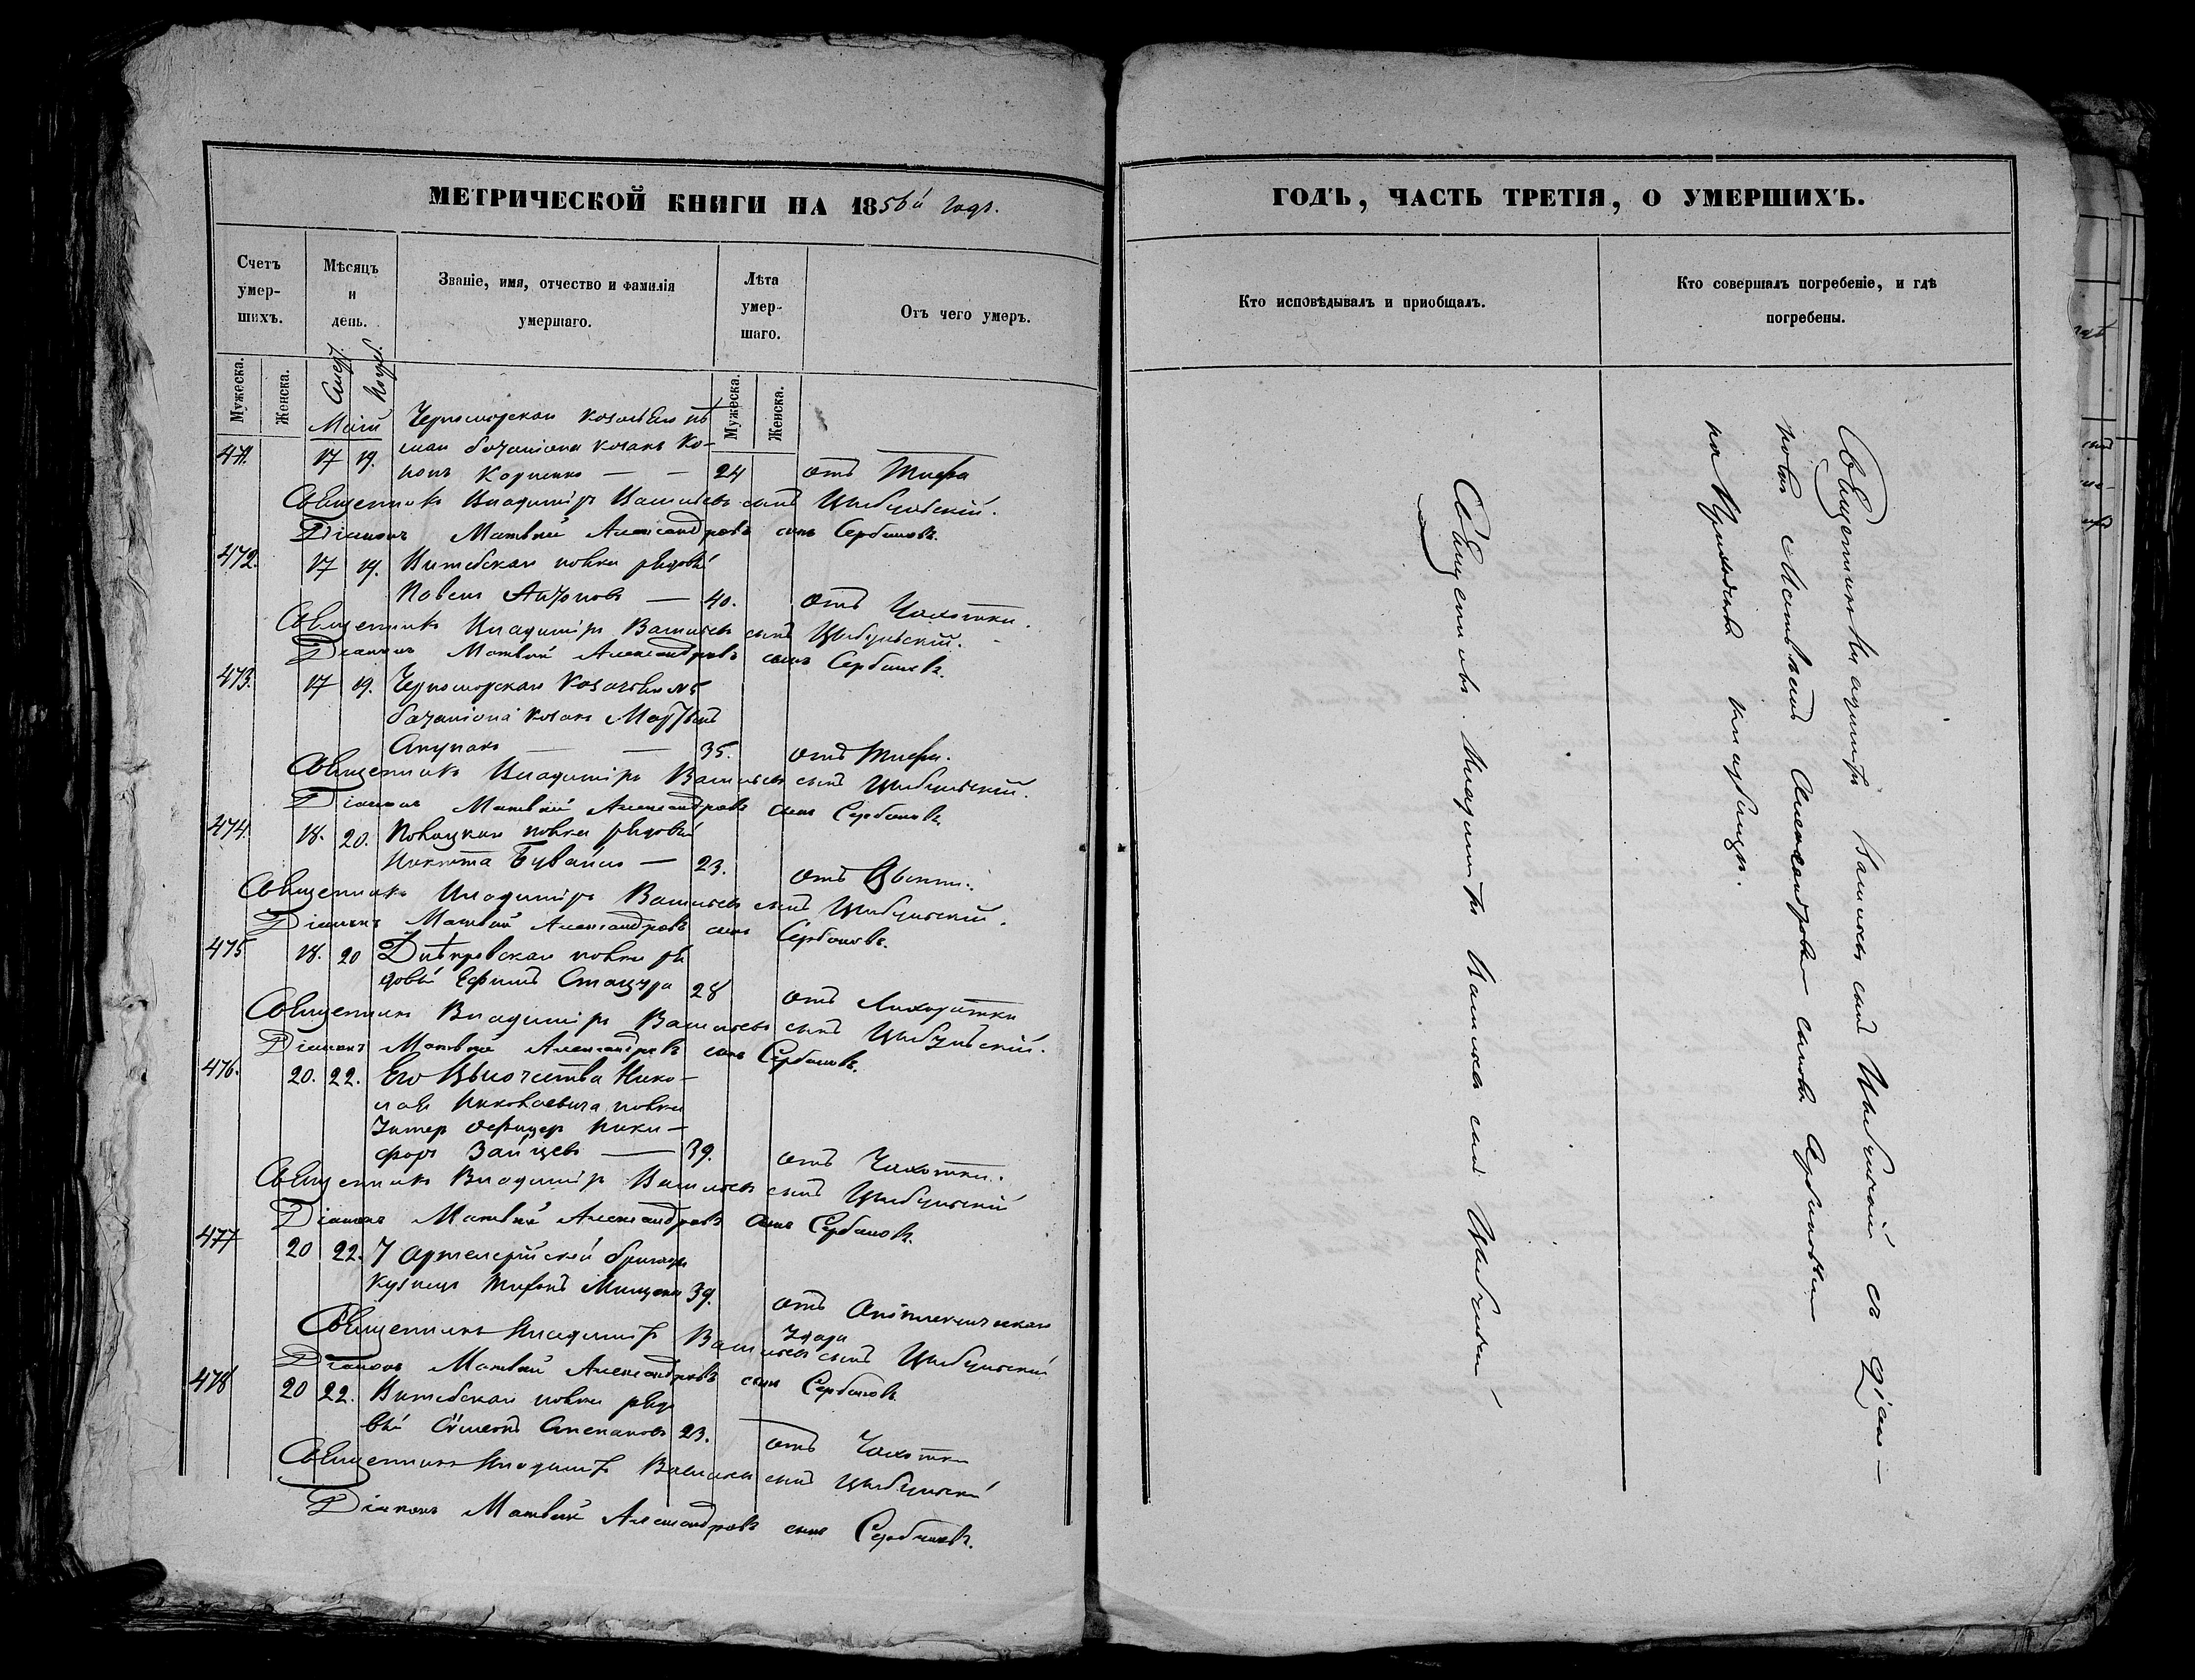 МЕТРИЧЕСКОЙ КНИГИ НА 1856й годъ.
Счетъ умер-шихъ.
Мѣсяцъ и день.
Званіе, имя, отчество и фамилія умершаго.
Лѣта умер-шаго.
Отъ чего умеръ.
Мужеска.
Женска.
Смерт.
Погреб.
Мужеска.
Женска.
Маій
Черноморскаго
471. 17 19. баталіона козакъ Ко-
24 отъ Тифа
Священникъ Владиміръ Васильевъ сынъ Цыбульскій.
Діаконъ Матвѣй Александровъ сынъ Сербиновъ.
472. 17 19. Витебскаго полка рядовый
Павелъ 40. отъ Чахотки.
Священникъ Владиміръ Васильевъ сынъ Цыбульскій.
Діаконъ Матвѣй Александровъ сынъ Сербиновъ.
473. 17 19. Черноморскаго №5
баталіона козакъ
35. отъ Тифа.
Священникъ Владиміръ Васильевъ сынъ Цыбульскій.
Діаконъ Матвѣй Александровъ сынъ Сербиновъ
474. 18. 20. полка рядовый
Никита 23. отъ
Священникъ Владиміръ Васильевъ сынъ Цыбульскій.
Діаконъ Матвѣй Александровъ сынъ Сербиновъ.
475 18. 20 Днѣпровскаго полка ря
довый Ефимъ Стацура 28 отъ Лихорадки
Священникъ Владиміръ Васильевъ сынъ Цыбульскій.
Діаконъ Матвѣй Александровъ сынъ Сербиновъ.
476. 20. 22. Его Высочества Нико-
лая Николаевича полка
Унтер Офицер Ники-
форъ Зайцевъ 39. отъ Чахотки.
Священникъ Владиміръ Васильевъ сынъ Цыбульскій
Діаконъ Матвѣй Александровъ сынъ Сербиновъ.
477 20 22. 7 Артилерійской бригады
кузнецъ Тихонъ Мищенко 39. отъ Апоплексическаго
Удара
Священникъ Владиміръ Васильевъ сынъ Цыбульскій
Діаконъ Матвѣй Александровъ сынъ Сербиновъ.
478 20 22. Витебскаго полка рядо
вый Симеонъ Степановъ 23. отъ Чахотки
Священникъ Владиміръ Васильевъ сынъ Цыбульскій
Діаконъ Матвѣй Александровъ сынъ Сербиновъ.
ГОДЪ, ЧАСТЬ ТРЕТІЯ, О УМЕРШИХЪ.
Кто исповѣдывалъ и пріобщалъ.
Кто совершалъ погребеніе, и гдѣ погребены.
Священникъ Владиміръ Васильевъ сынъ Цыбульскій
Священникъ Владиміръ Васильевъ сынъ Цыбульскій съ Діако-
номъ Матвѣемъ Александровымъ сыномъ Сербиновымъ
на кладбищѣ.